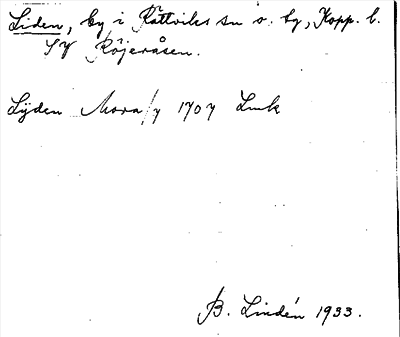 Liden, by i Rättviks sn o. by, Kopp. l.
SV Röjeråsen.
Lijden Mora/y 1707 Lmk
B. Lindén 1933.